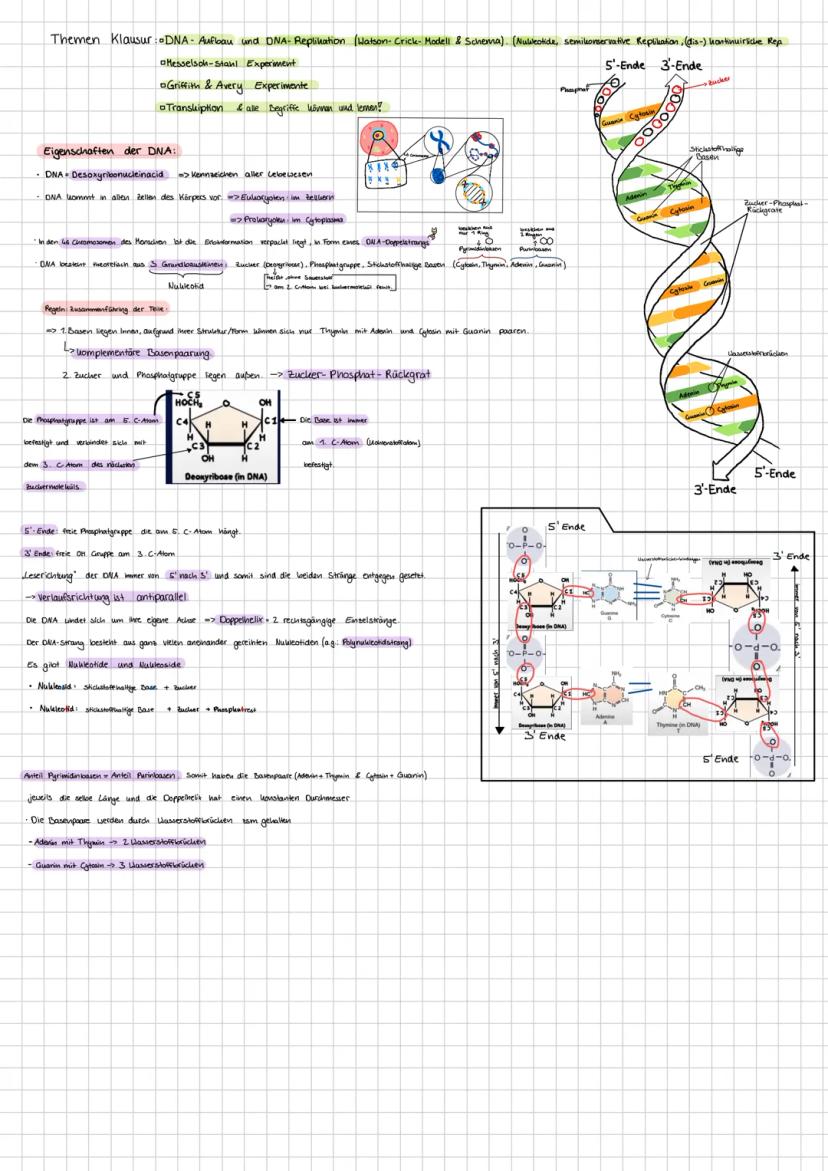 Themen Klausur: DNA- Aufbau und DNA- Replikation (Watson- Crick- Modell & Schema). (Nukleotide, semikonservative Replikation, (dis-) kontinuirliche Rep.
Messelson-Stahl Experiment
Griffith & Avery Experimente
Transkription & alle Begriffe können und lernen!
5'-Ende 3'-Ende
Phosphat
Zucker
Guanin Cytosin
Stickstoffhaltige Basen
Adenin Thymin
Guanin Cytosin
Zucker-Phosphat-Rückgrate
Cytosin Guanin
Wasserstoffbrücken
Adenin Thymin
Guanin Cytosin
3'-Ende
5'-Ende
Eigenschaften der DNA:
· DNA = Desoxyribonucleinacid => Kennzeichen aller Lebewesen
· DNA kommt in allen Zellen des Körpers vor. => Eukaryoten: im Zellkern
=> Prokaryoten: im Cytoplasma
· In den 46 Chromosomen des Menschen ist die Erbinformation verpackt liegt, in Form eines DNA-Doppelstrangs
bestehen aus nur 1 Ring
Pyrimidinbasen
bestehen aus 2 Ringen
Purinbasen
· DNA besteht theoretisch aus 3 Grundbausteinen: Zucker (Deoxyribose), Phosphatgruppe, Stickstoffhaltige Basen (Cytosin, Thymin, Adenin, Guanin)
Nukleotid
heißt „ohne Sauerstoff“
-> am 2. C-Atom bei Zuckermolekül fehlt.
Regeln: Zusammenführung der Teile:
=> 1. Basen liegen innen, aufgrund ihrer Struktur/Form können sich nur Thymin mit Adenin und Cytosin mit Guanin paaren.
komplementäre Basenpaarung.
2. Zucker und Phosphatgruppe liegen außen. -> Zucker- Phosphat - Rückgrat
Die Phosphatgruppe ist am 5. C-Atom
befestigt und verbindet sich mit
dem 3. C-Atom des nächsten
Zuckermoleküls.
C5
HOCH₂ O OH
C4 C1
H H H H
C3 C2
OH H
Deoxyribose (in DNA)
Die Base ist immer
am 1. C-Atom (Kohlenstoffatom)
befestigt.
5'-Ende: freie Phosphatgruppe die am 5. C-Atom hängt.
3' Ende: freie OH Gruppe am 3. C-Atom
„Leserichtung“ der DNA immer von 5' nach 3' und somit sind die beiden Stränge entgegen gesetzt.
-> Verlaufsrichtung ist antiparallel
Die DNA windet sich um ihre eigene Achse => Doppelhelix = 2 rechtsgängige Einzelstränge.
Der DNA-Strang besteht aus ganz vielen aneinander gereihten Nukleotiden (a.g.: Polynukleotidstrang)
Es gibt Nukleotide und Nukleoside
• Nukleosid: stickstoffhaltige Base + Zucker
• Nukleotid: stickstoffhaltige Base + Zucker + Phosphatrest
5' Ende
3' Ende
Guanine
G
Cytosine
C
Deoxyribose (in DNA)
immer von 5' nach 3'
Adenine
A
Thymine (in DNA)
T
Deoxyribose (in DNA)
immer von 5' nach 3'
3' Ende
5' Ende
Anteil Pyrimidinbasen = Anteil Purinbasen. Somit haben die Basenpaare (Adenin + Thymin & Cytosin + Guanin)
jeweils die selbe Länge und die Doppelhelix hat einen konstanten Durchmesser
· Die Basenpaare werden durch Wasserstoffbrücken zsm gehalten
- Adenin mit Thymin -> 2 Wasserstoffbrücken
- Guanin mit Cytosin -> 3 Wasserstoffbrücken